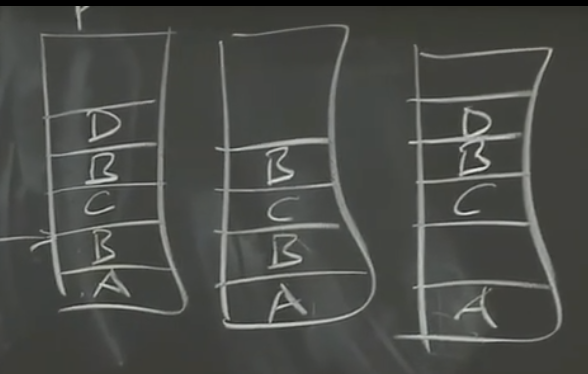 D
B
C
B
A
B
C
B
A
D
B
C
A